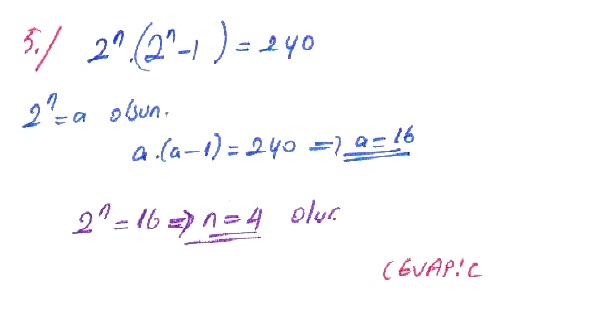 5./ 2ⁿ.(2ⁿ-1) = 240
2ⁿ = a olsun.
a.(a-1) = 240 => a = 16
2ⁿ = 16 => n = 4 olur.
CEVAP: C